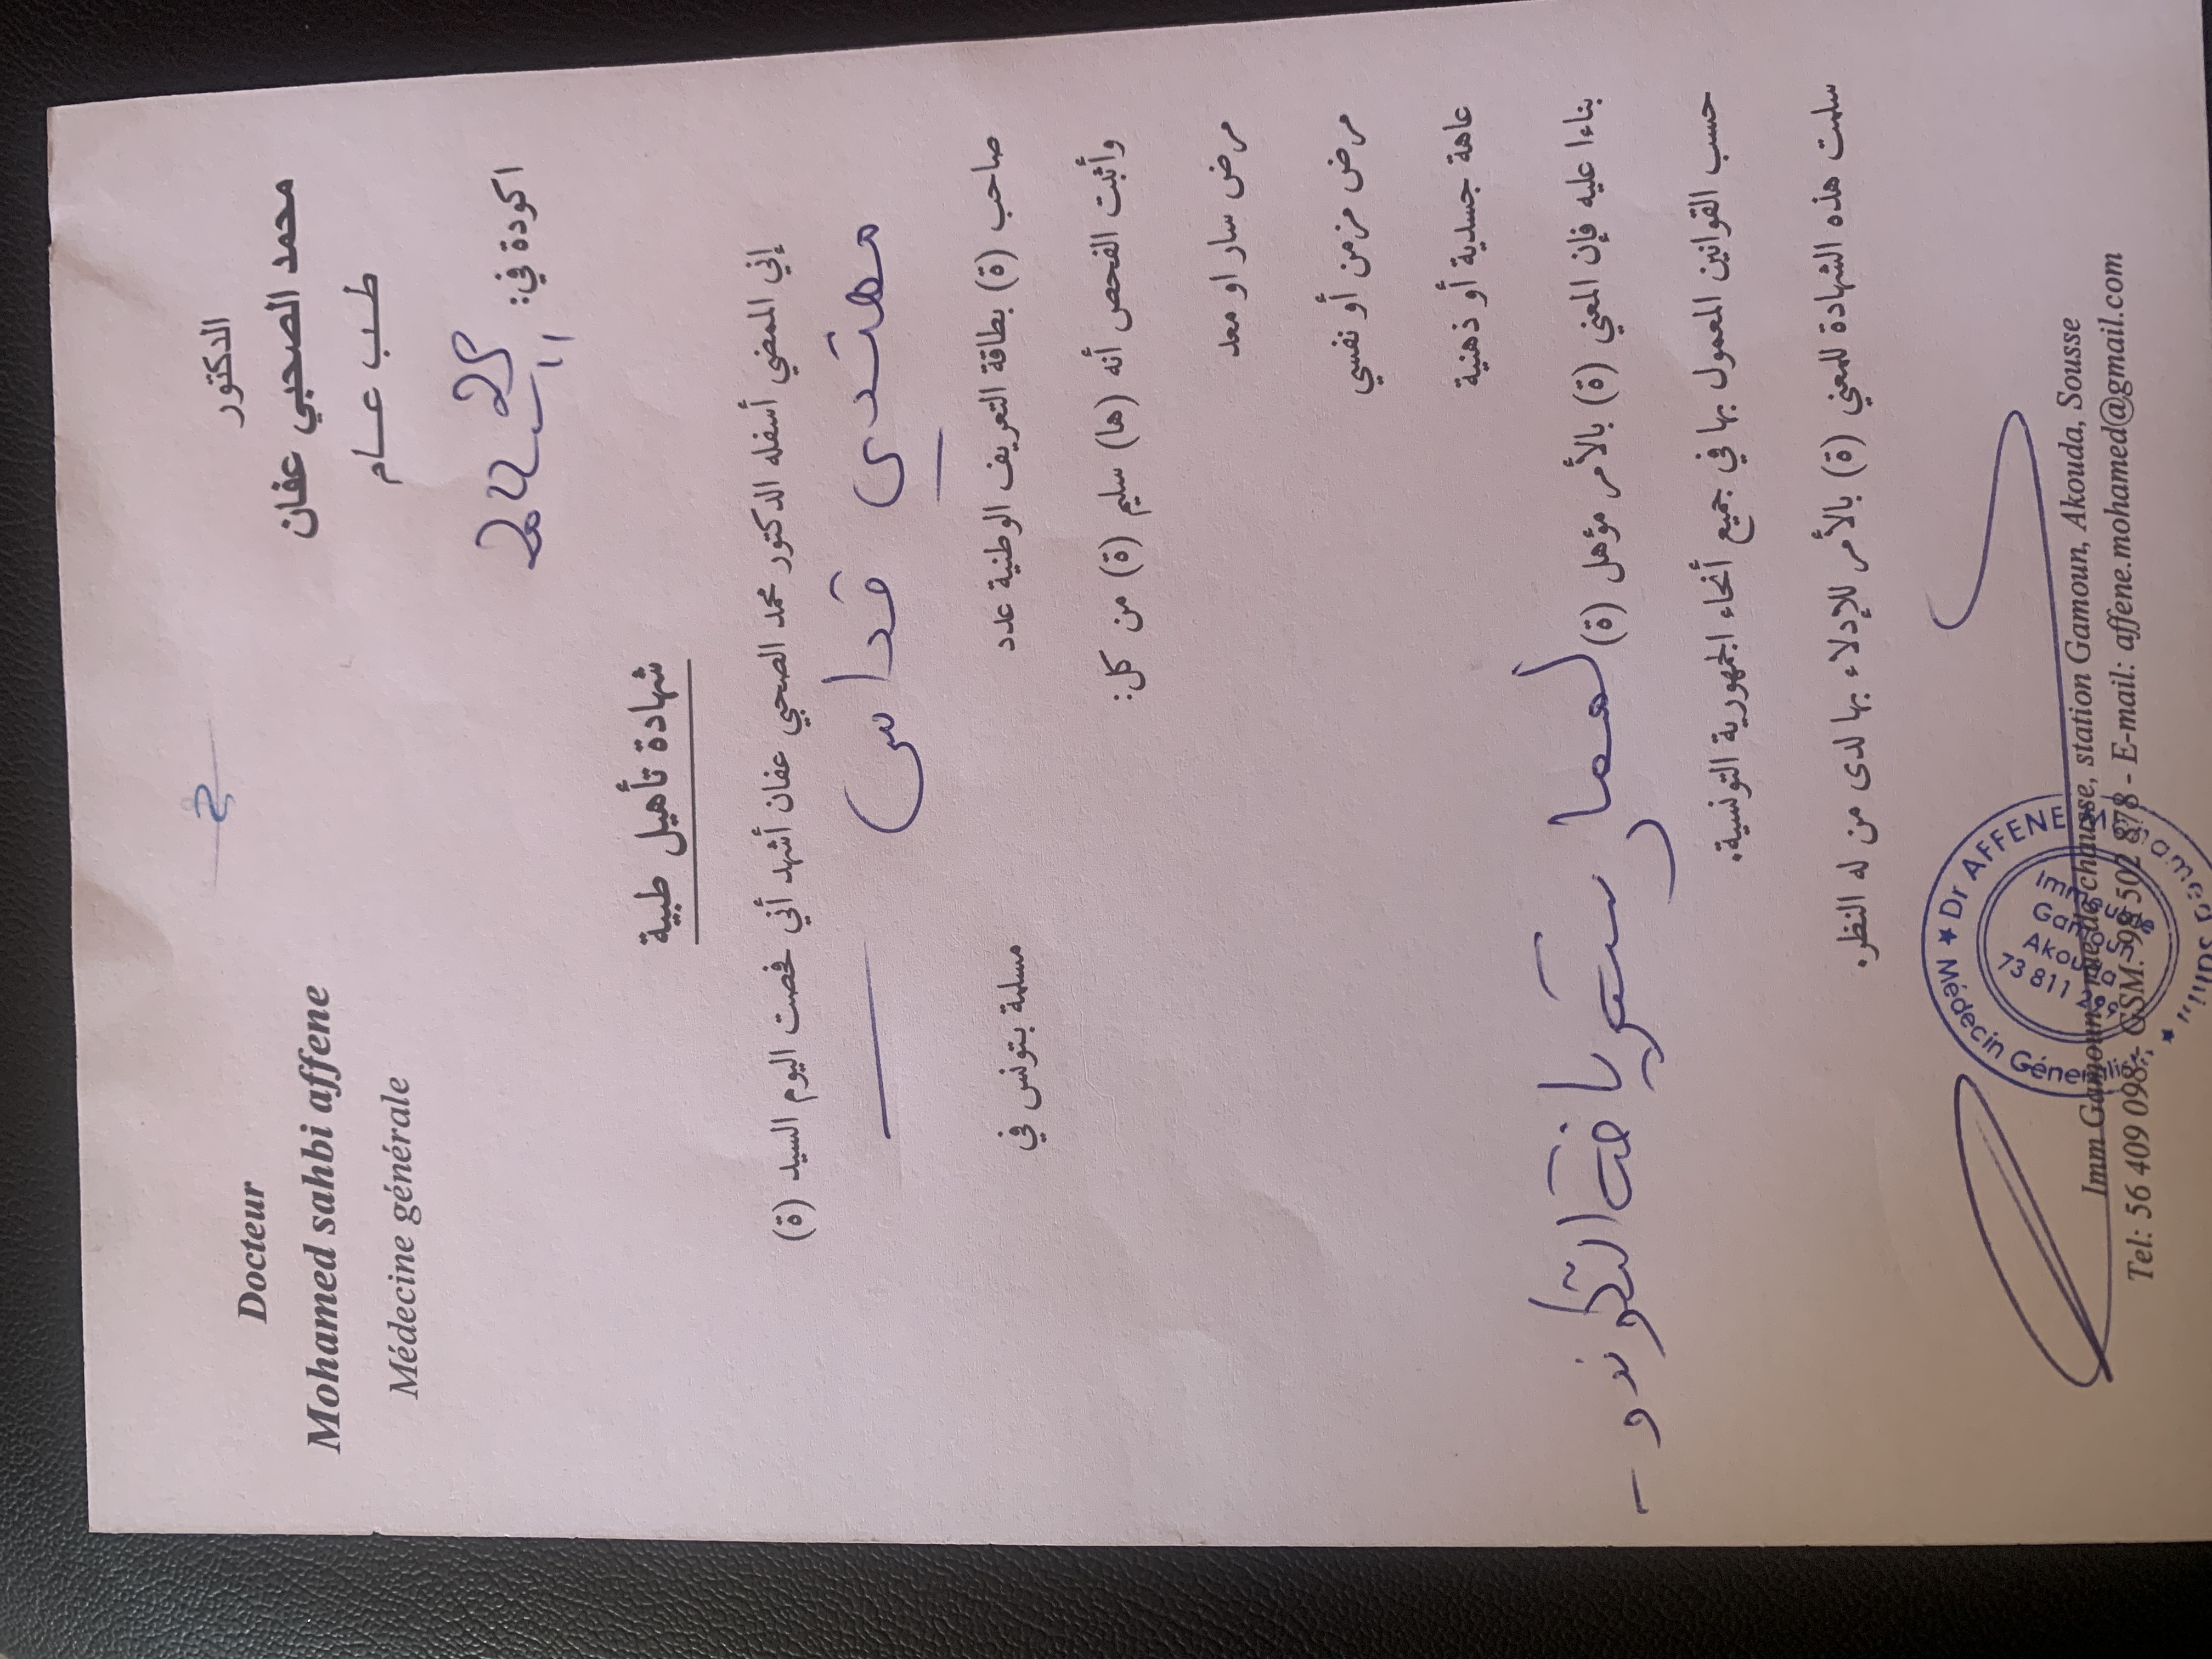 Docteur
Mohamed sahbi affene
Médecine générale
الدكتور
محمد الصحبي عفان
طـب عـــام
اكودة في:
شهادة تأهيل طبية
إني الممضي أسفله الدكتور محمد الصحبي عفان أشهد أني فحصت اليوم السيد (ة)
مهتدي قداس
صاحب (ة) بطاقة التعريف الوطنية عدد مسلمة بتونس في
وأثبت الفحص أنه (ها) سليم (ة) من كل:
مرض سار او معد
مرض مزمن أو نفسي
عاهة جسدية أو ذهنية
بناءا عليه فإن المعني (ة) بالأمر مؤهل (ة)
حسب القوانين المعمول بها في جميع أنحاء الجمهورية التونسية.
سلمت هذه الشهادة للمعني (ة) بالأمر للإدلاء بها لدى من له النظر.
Dr AFFENE Mohamed Sahbi ★ Médecin Généraliste ★
Immeuble
Gamoun
Akouda
73 811
Imm Gamoun, rue de chausse, station Gamoun, Akouda, Sousse
Tel: 56 409 098 - GSM: 98 502 878 - E-mail: affene.mohamed@gmail.com